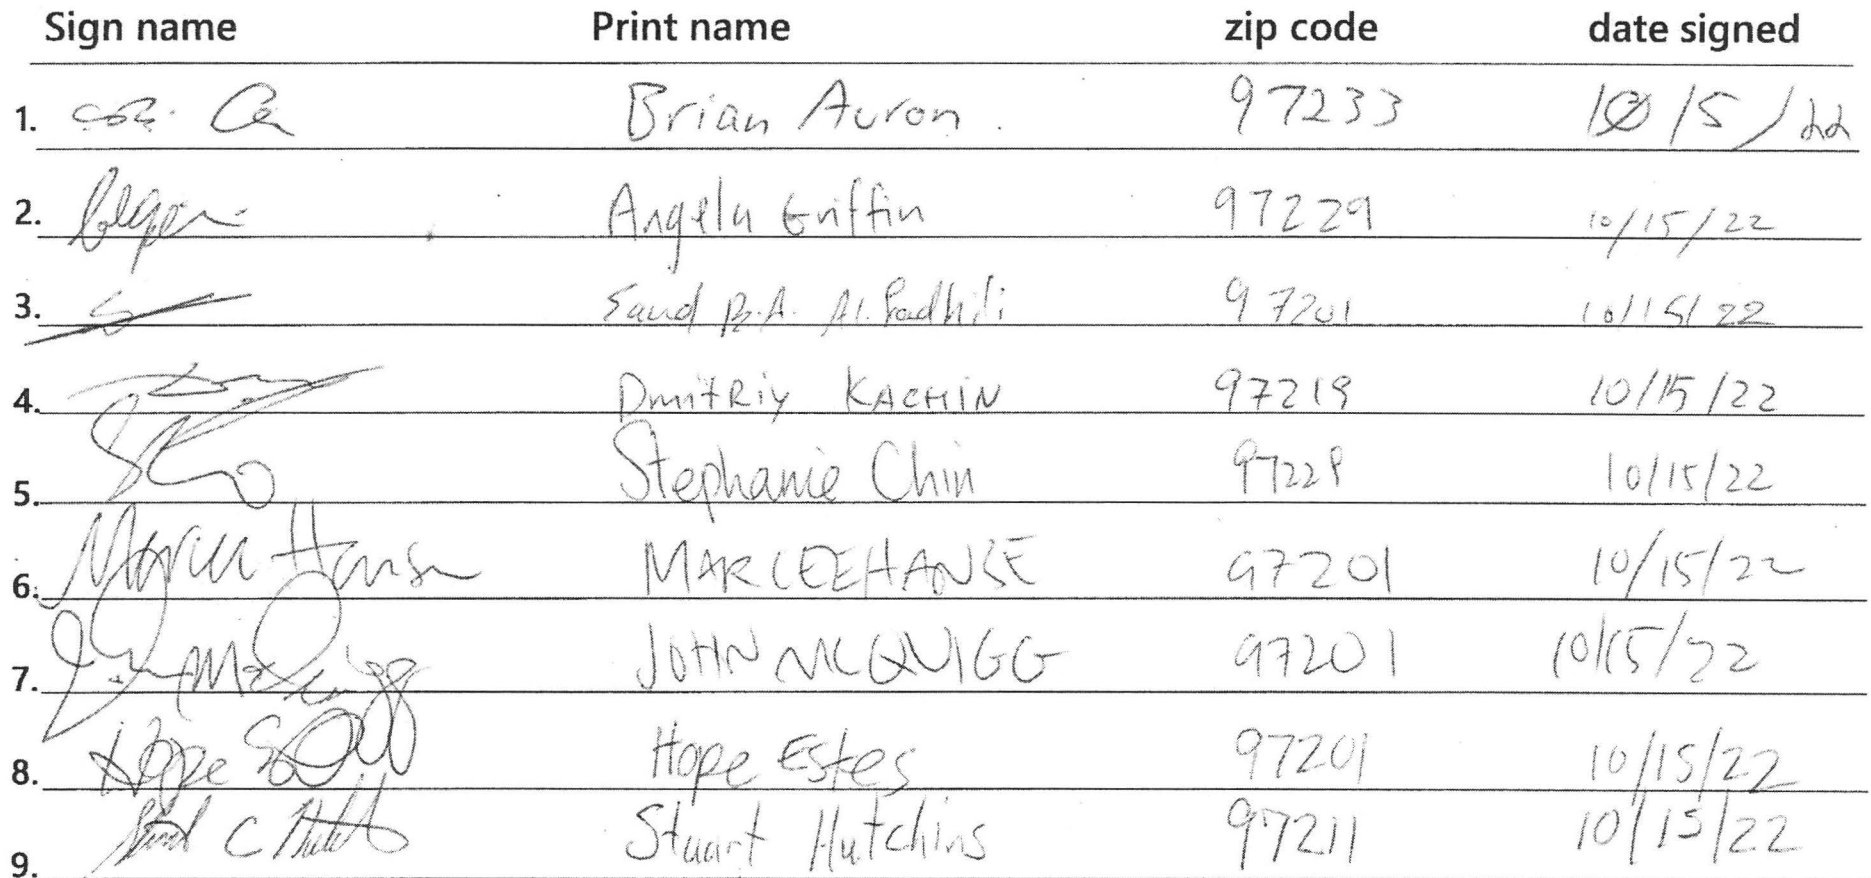 Sign name Print name zip code date signed
1. Brian Auron. 97233 10/5/22
2. Angela Griffin 97229 10/15/22
3. Saud 97201 10/15/22
4. Dmitriy KACHIN 97219 10/15/22
5. Stephanie Chin 97229 10/15/22
6. MARCEEHANSE 97201 10/15/22
7. JOHN MCQUIGG 97201 10/15/22
8. Hope Estes Hope Estes 97201 10/15/22
9. Stuart Hutchins 97211 10/15/22